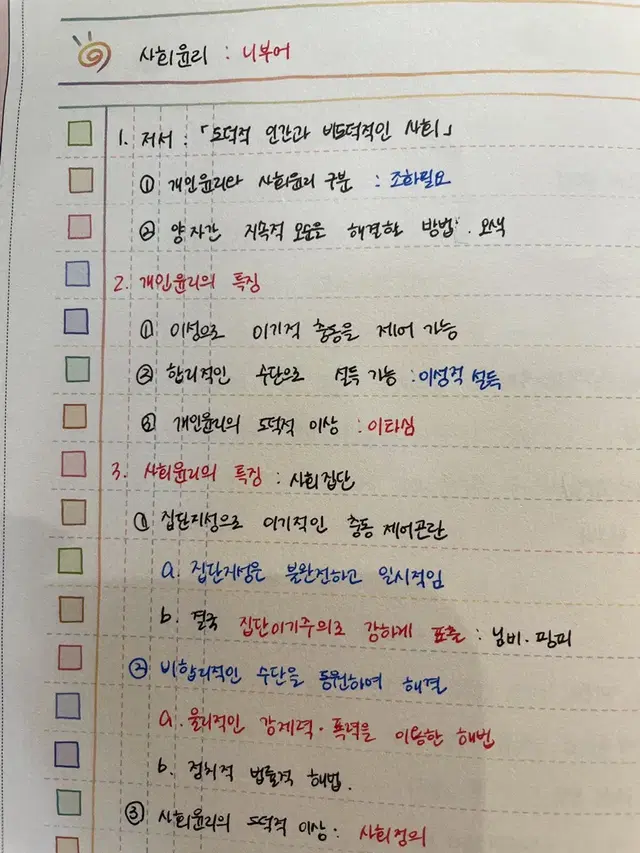 사회윤리 : 니부어
1. 저서 : 「도덕적 인간과 비도덕적인 사회」
① 개인윤리와 사회윤리 구분 : 조화필요
② 양자간 지속적 모순을 해결할 방법. 모색
2. 개인윤리의 특징
① 이성으로 이기적 충동을 제어 가능
② 합리적인 수단으로 설득 가능 : 이성적 설득
③ 개인윤리의 도덕적 이상 : 이타심
3. 사회윤리의 특징 : 사회집단
① 집단지성으로 이기적인 충동 제어곤란
a. 집단지성은 불완전하고 일시적임
b. 결국 집단이기주의로 강하게 표출 : 님비·핌피
② 비합리적인 수단을 동원하여 해결
a. 물리적인 강제력·폭력을 이용한 해법
b. 정치적 법률적 해법.
③ 사회윤리의 도덕적 이상 : 사회정의